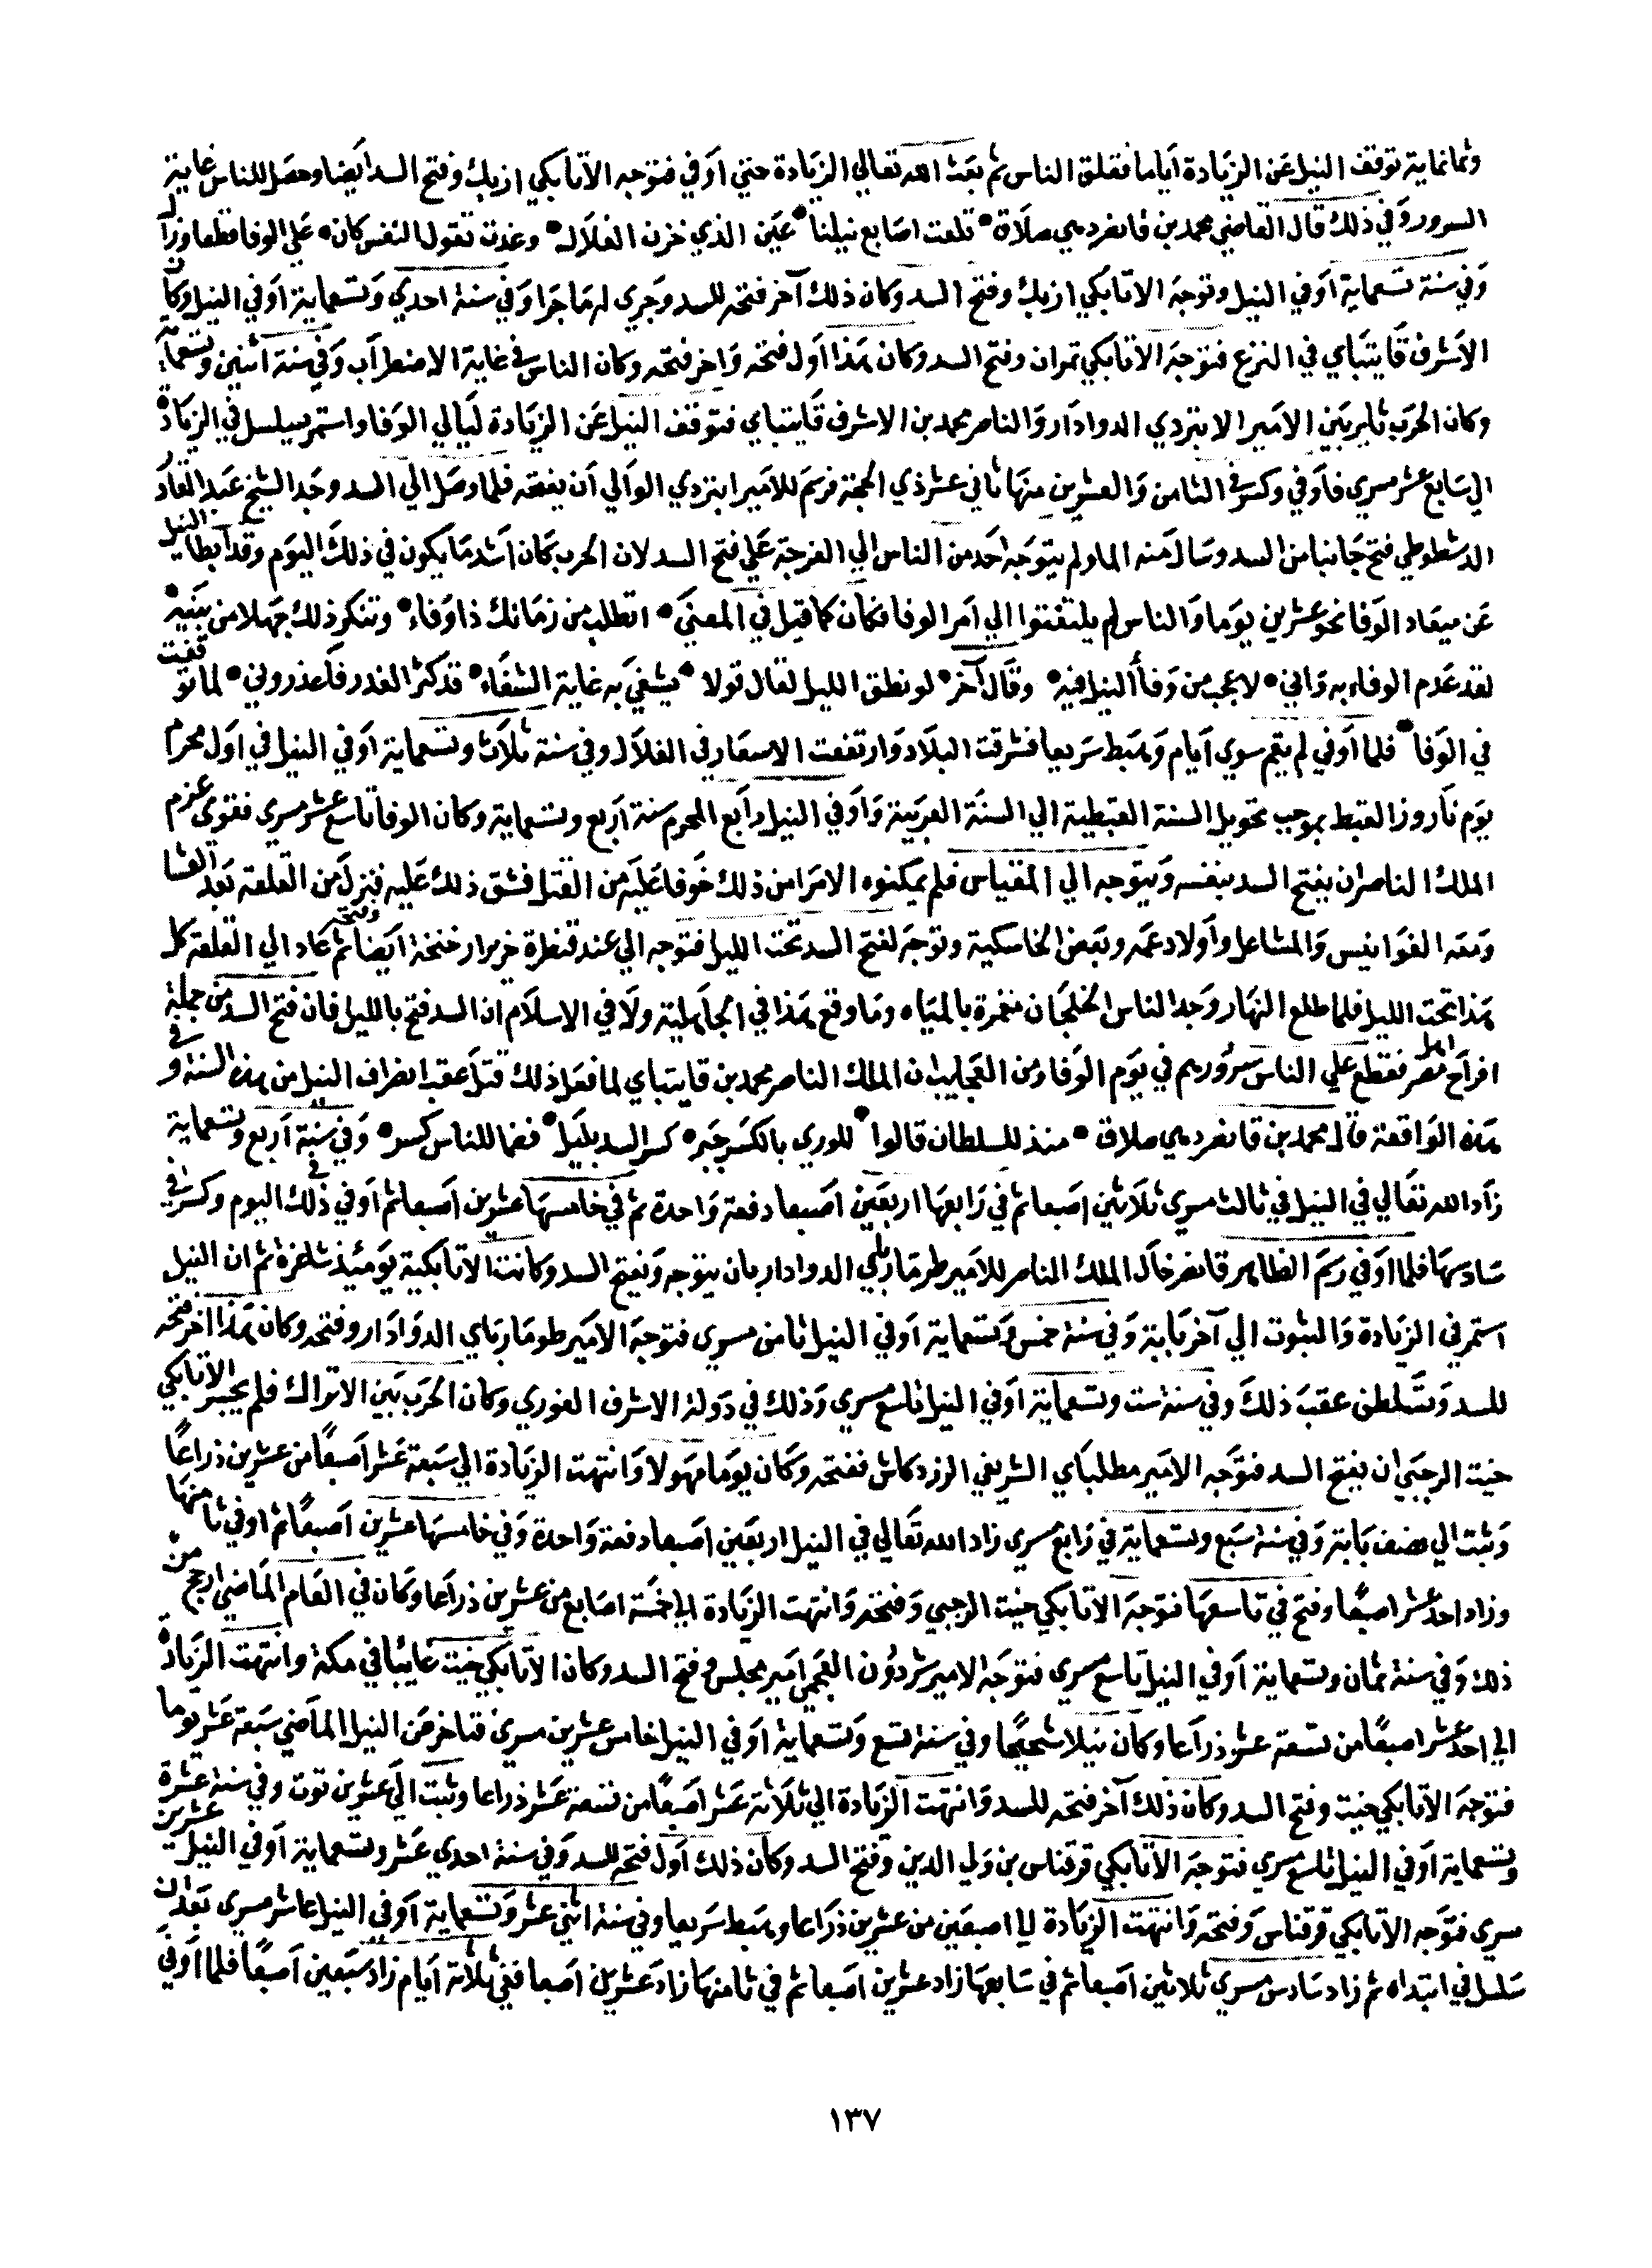 وثمانماية توقف النيل عن الزيادة أياما فقلق الناس ثم بعث الله تعالي الزيادة حتي أوفي فتوجه الأتابكي ازبك وفتح السد أيضا وحصل للناس غاية
السرور وفي ذلك قال القاضي محمد بن قانصر دمي صلاة • تلعت اصابع نيلنا • عين الذي خزن الغلاله • وغدت تقول النفس كان • علي الوفا قطعا وزال
وفي سنة تسعماية أوفي النيل وتوجه الاتابكي ازبك وفتح السد وكان ذلك آخر فتحه للسد وجري له ما جرا وفي سنة احدي وتسعماية أوفي النيل وكان
الأشرف قايتباي في النزع فتوجه الأتابكي تمران وفتح السد وكان هذا أول فتحه واخر فتحه وكان الناس في غاية الاضطراب وفي سنة أثنين وتسعماية
وكان الحرب ثاير بين الأمير الابتردي الدوادار والناصر محمد بن الاشرف قايتباي فتوقف النيل عن الزيادة ليالي الوفا واستمر يسلسل في الزيادة
الي سابع عشر مسري فأوفي وكسر في الثامن والعشرين منها ثاني عشر ذي الحجة فرسم للأمير ابتردي الوالي أن يفتحه فلما وصل الي السد وجد الشيخ عبد القادر
الدشطوطي فتح جانبا من السد وسال منه الما ولم يتوجه أحد من الناس الي الفرجة علي فتح السد لان الحرب كان اشد ما يكون في ذلك اليوم وقد أبطا النيل
عن ميعاد الوفا نحو عشرين يوما والناس لم يلتفتوا الي أمر الوفا فكان كما قيل في المعني • اتطلب من زمانك ذا وفاء • وتنكر ذلك جهلا من بنيه •
لقد عدم الوفاء به واني • لا عجب من وفأ النيل فيه • وقال آخر • لو نطق الليل لقال قولا • يشفي به غاية الشفاء • قد كثر الغدر فاعذروني • لما توقفت
في الوفا • فلما أوفي لم يقم سوي أيام وهبط سريعا فشرقت البلاد وارتفعت الاسعار في الغلال وفي سنة ثلاث وتسعماية أوفي النيل في اول محرم
يوم ناروز القبط بموجب تحويل السنة القبطية الي السنة العربية وأوفي النيل رابع المحرم سنة أربع وتسعماية وكان الوفا تاسع عشر مسري فقوي عزم
الملك الناصر ان يفتح السد بنفسه ويتوجه الي المقياس فلم يمكنوه الامرا من ذلك خوفا عليه من القتل فشق ذلك عليه فنزل من القلعة بعد العشا
ومعه الفوانيس والمشاعل وأولاد عمه وبعض الخاسكية وتوجه لفتح السد تحت الليل فتوجه الي عند قنطرة وفتحه أيضا ثم عاد الي القلعة كل
هذا تحت الليل فلما طلع النهار وجد الناس الخلجان منغمرة بالمياه وما وقع هذا في الجاهلية ولا في الاسلام ان السد فتح بالليل فان فتح السد من جملة
افراح اهل مصر فقطع علي الناس سرورهم في يوم الوفا ومن العجايب ان الملك الناصر محمد بن قايتباي لما فعل ذلك قتل عقب انصراف النيل من هذه السنة وفي
هذه الواقعة قال محمد بن قانصر دمي صلاق • منذ للسلطان قالوا • للوري بالكسر جبر • كسر السد بليل • فضا للناس كسر • وفي سنة أربع وتسعماية
زاد الله تعالي في النيل في ثالث مسري ثلاثين إصبعا ثم في رابعها اربعين أصبعا دفعة واحدة ثم في خامسها عشرين أصبعا ثم أوفي في ذلك اليوم وكسر في
سادسها فلما أوفي رسم الظاهر قانصر خال الملك الناصر للأمير طرماربلي الدوادار بان يتوجه ويفتح السد وكانت الاتابكية يومئذ شاغرة ثم ان النيل
استمر في الزيادة والثبوت الي آخر بابة وفي سنة خمس وتسعماية أوفي النيل ثامن مسري فتوجه الأمير طومارباي الدوادار وفتحه وكان هذا اخر فتحه
للسد وتسلطن عقب ذلك وفي سنة ست وتسعماية أوفي النيل تاسع مسري وذلك في دولة الاشرف الغوري وكان الحرب بين الاتراك فلم يجسر الأتابكي
حنيت الرجبي ان يفتح السد فتوجه الامير مطلباي الشريفي الرزدكاش ففتحه وكان يوما مهولا وانتهت الزيادة الي سبعة عشر أصبعًا من عشرين ذراعًا
وثبت الي نصف بابة وفي سنة سبع وتسعماية في رابع مسري زاد الله تعالي في النيل اربعين اصبعا دفعة واحدة وفي خامسها عشرين اصبعًا ثم اوفي ثامنها
وزاد احد عشر اصبعًا وفتح في تاسعها فتوجه الاتابكي حنيت الرجبي وفتحه وانتهت الزيادة الي خمسة اصابع من عشرين ذراعا وكان في العام الماضي ارجح من
ذلك وفي سنة ثمان وتسعماية أوفي النيل تاسع مسري فتوجه الامير شردون العجمي أمير مجلس وفتح السد وكان الاتابكي حنيت غايبًا في مكة وانتهت الزيادة
الي احد عشر اصبعًا من تسعة عشر ذراعا وكان نيلا شحيحًا وفي سنة تسع وتسعماية أوفي النيل خامس عشرين مسري فتاخر عن النيل الماضي سبعة عشر يوما
فتوجه الاتابكي حنيت وفتح السد وكان ذلك آخر فتحه للسد وانتهت الزيادة الي ثلاثة عشر اصبعًا من تسعة عشر ذراعا وثبت الي عشرين توت وفي سنة عشرة
وتسعماية أوفي النيل تاسع مسري فتوجه الأتابكي قرقناس بن ولي الدين وفتح السد وكان ذلك أول فتحه للسد وفي سنة احدي عشر وتسعماية أوفي النيل عشرين
مسري فتوجه الاتابكي قرقناس وفتحه وانتهت الزيادة الي اصبعين من عشرين ذراعا وهبط سريعا وفي سنة اثني عشر وتسعماية أوفي النيل عاشر مسري بعد ان
سلسل في ابتداه ثم زاد سادس مسري ثلاثين أصبعا ثم في سابعها زاد عشرين اصبعا ثم في ثامنها زاد عشرين اصبعا ففي ثلاثة أيام زاد سبعين أصبعًا فلما أوفي
١٣٧